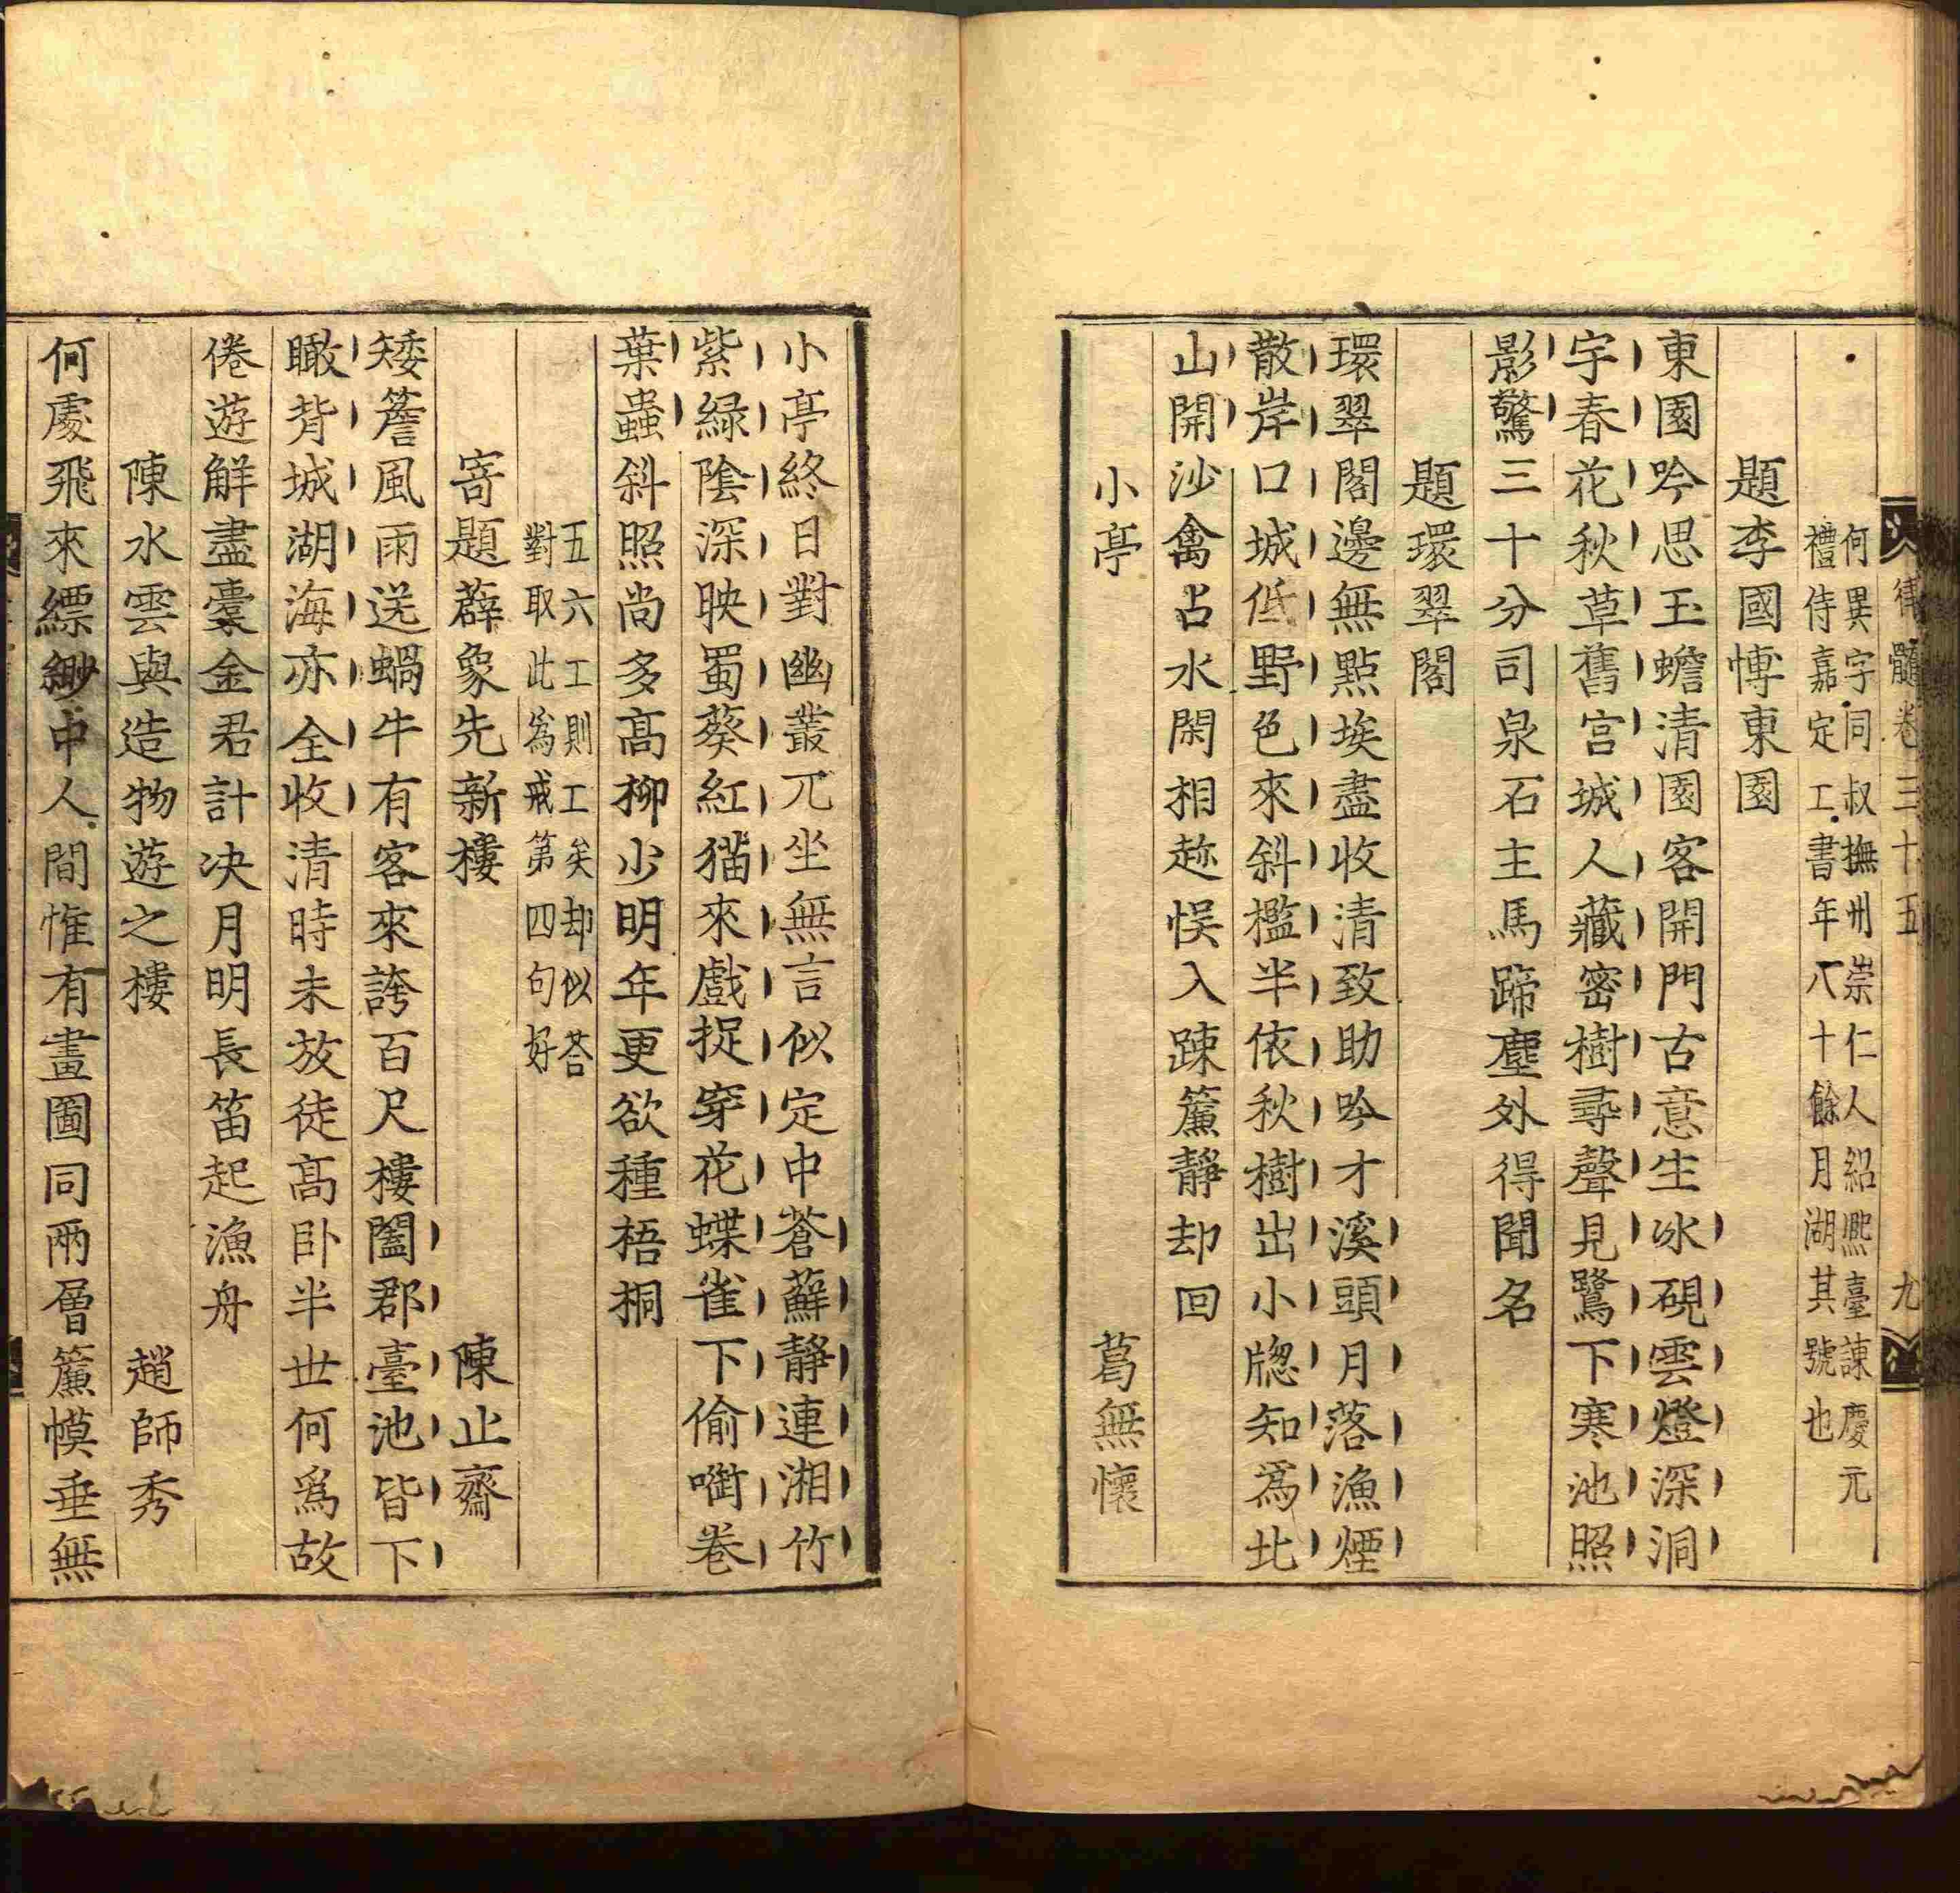 律髓卷三十五 九
何異字同叔撫州崇仁人紹熙臺諫慶元
禮侍嘉定工書年八十餘月湖其號也
題李國愽東園
東園吟思玉蟾清園客開門古意生冰硯雲燈深洞
宇春花秋草舊宮城人藏密樹尋聲見鷺下寒池照
影驚三十分司泉石主馬蹄塵外得聞名
題環翠閣
環翠閣邊無點埃盡收清致助吟才溪頭月落漁煙
散岸口城低野色來斜檻半依秋樹出小牕知爲北
山開沙禽占水閑相趂悮入踈簾靜却回
小亭 葛無懷
小亭終日對幽叢兀坐無言似定中蒼蘚靜連湘竹
紫緑陰深映蜀葵紅猫來戲捉穿花蝶雀下偷啣卷
葉蟲斜照尚多高柳少明年更欲種梧桐
五六工則工矣却似荅
對取此為戒第四句好
寄題薜象先新樓 陳止齋
矮簷風雨送蝸牛有客來誇百尺樓闔郡臺池皆下
瞰背城湖海亦全收清時未放徒高卧半世何爲故
倦遊觧盡囊金君計决月明長笛起漁舟
陳水雲與造物遊之樓 趙師秀
何處飛來縹緲中人間惟有畫圖同兩層簾幙垂無